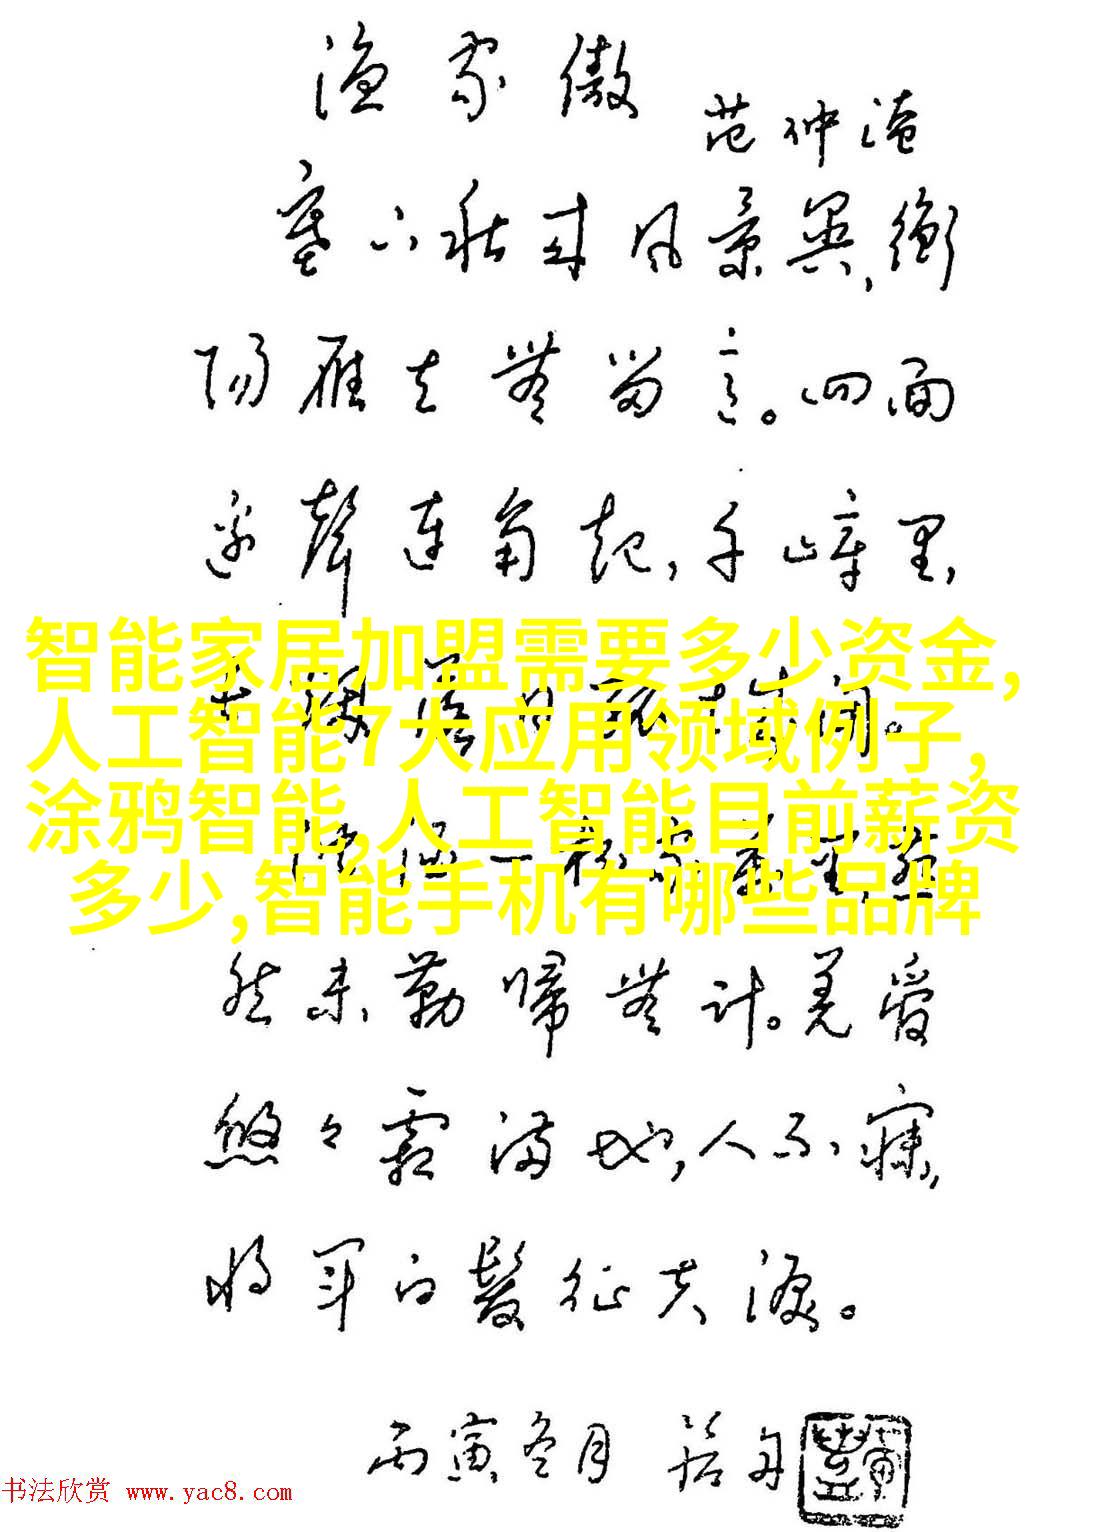 渔家傲
范仲淹
塞下秋来风景异,衡
阳雁去无留意。四面
边声连角起,千嶂里,
智能家居加盟需要多少资金,
长烟落日孤城闭。
人工智能7大应用领域例子,
涂鸦智能,人工智能目前薪资
浊酒一杯家万里,燕
多少,智能手机有哪些品牌
然未勒歸無计。羌
悠々霜满地,人不寐,
将军白髮征夫淚。
丙寅冬月
书法欣赏 www.yac8.com